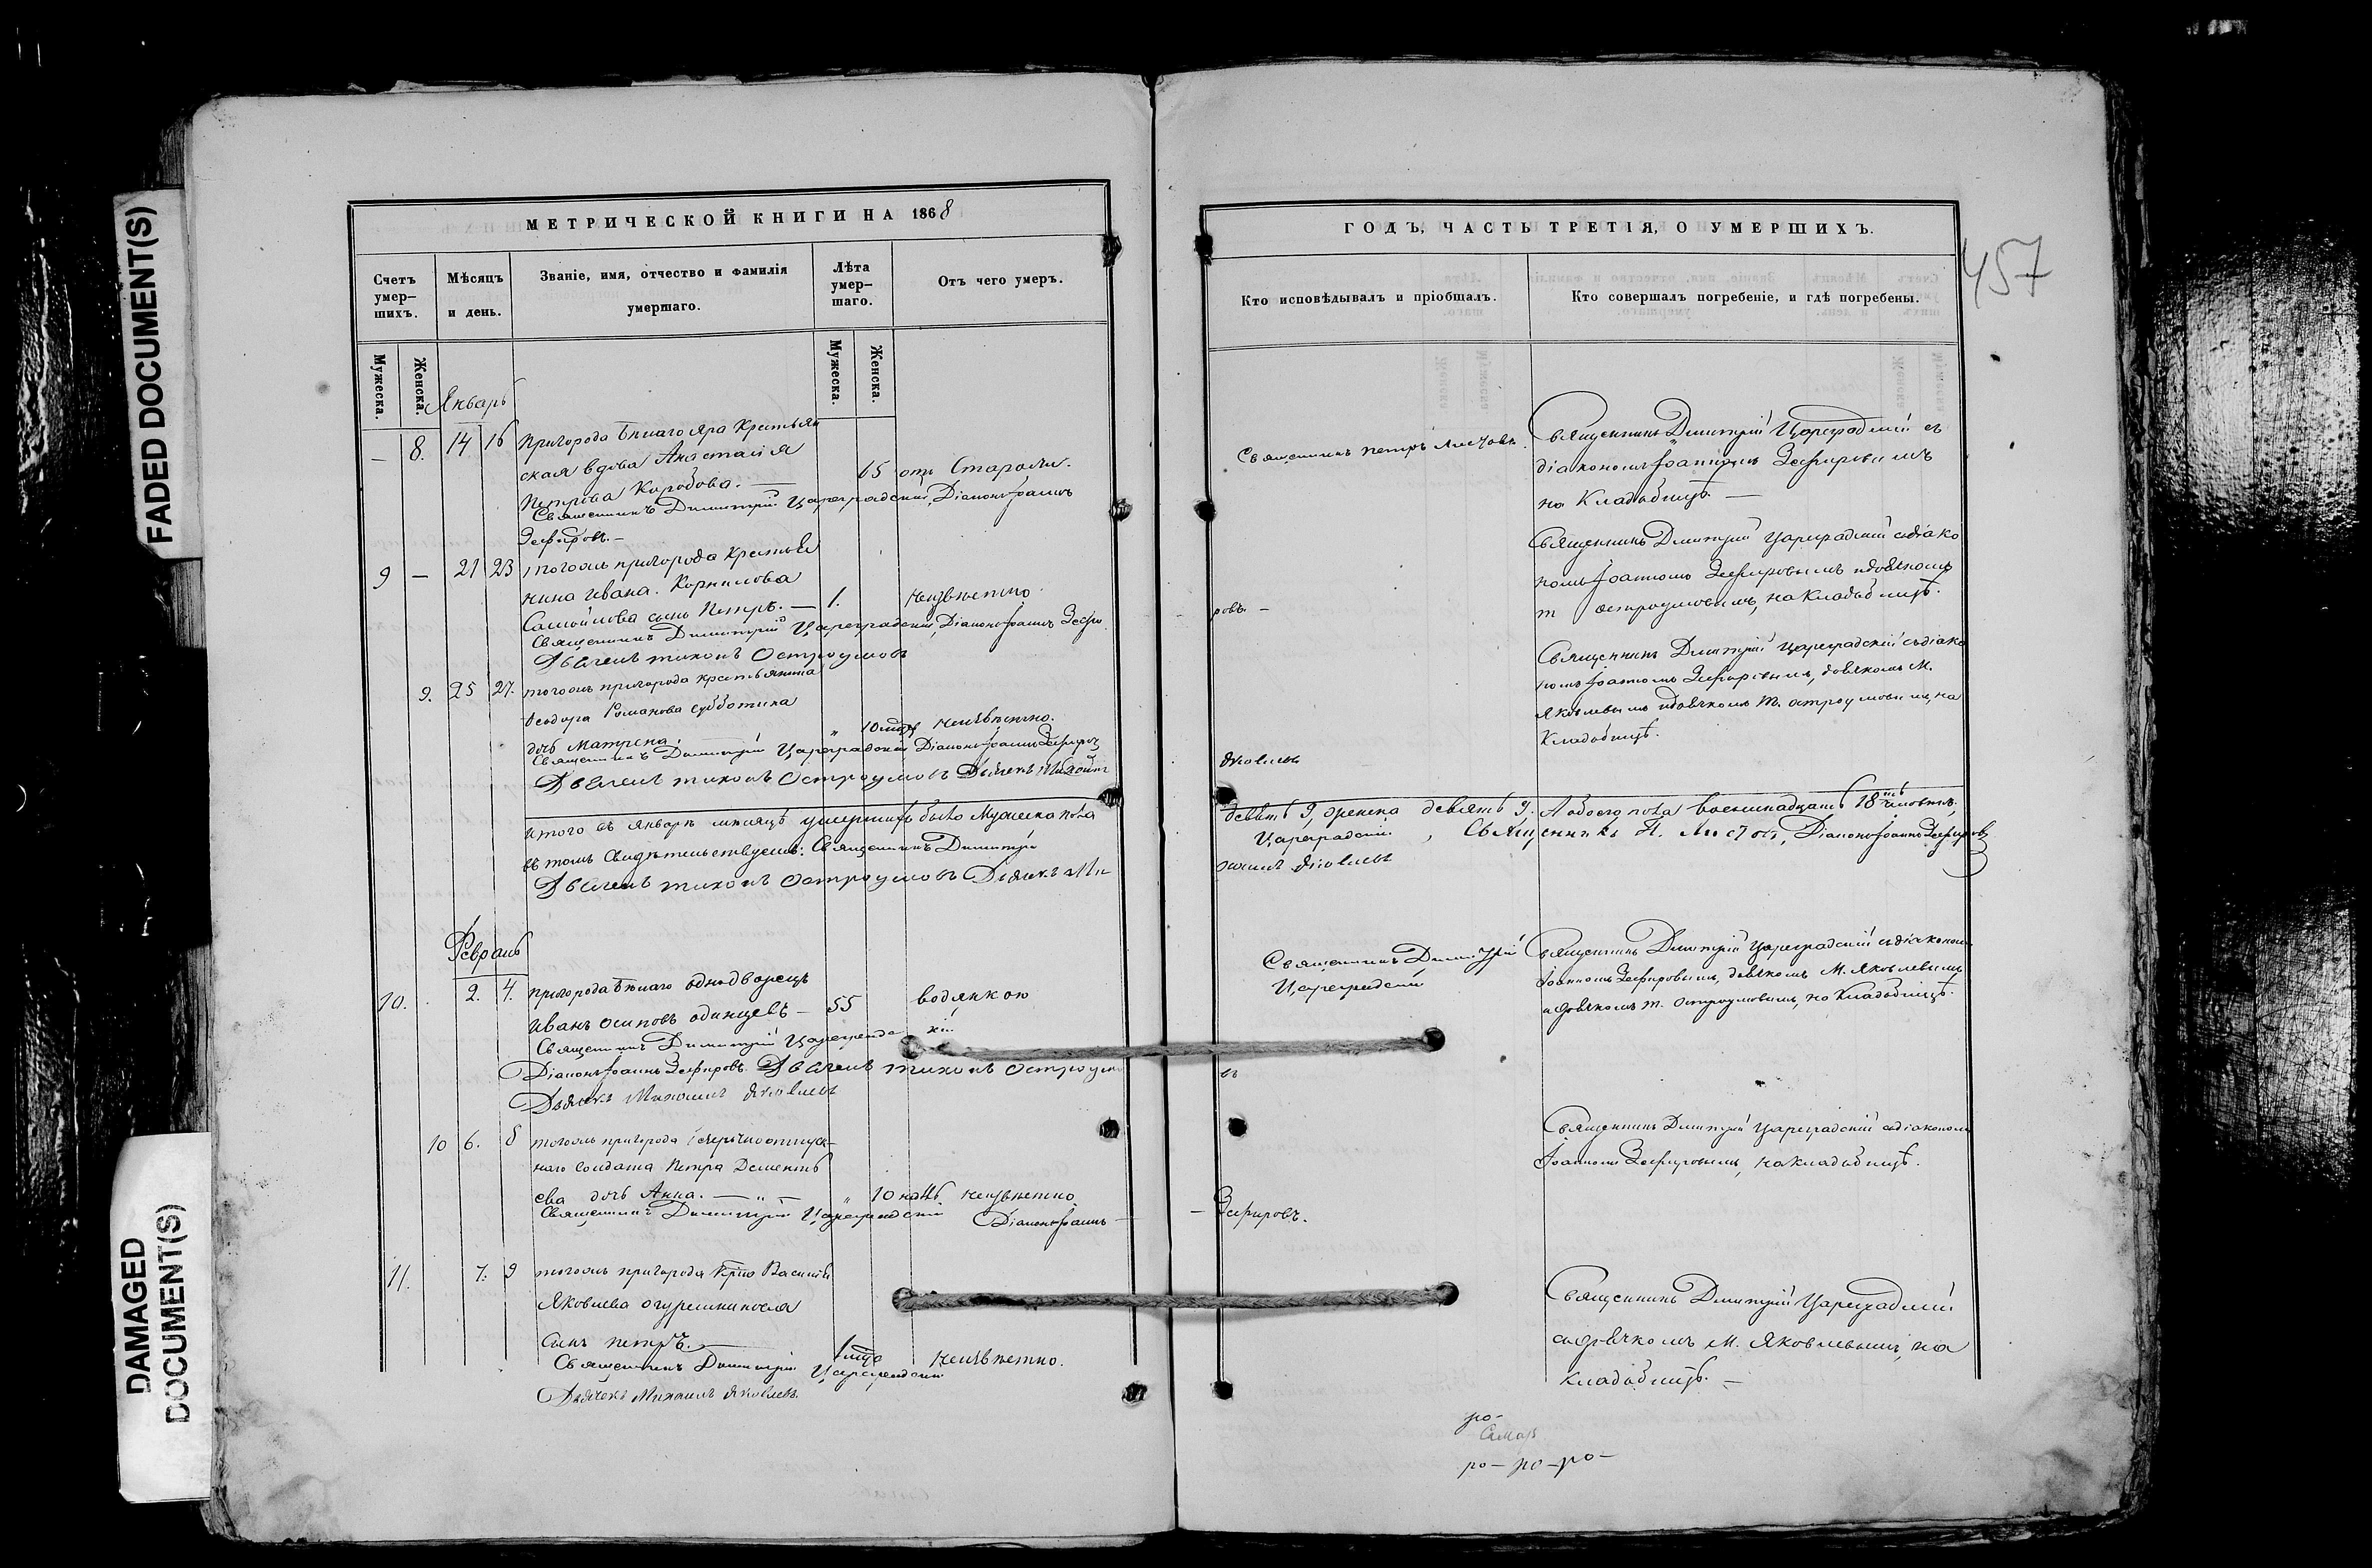 FADED DOCUMENT(S)
DAMAGED
DOCUMENT(S)
МЕТРИЧЕСКОЙ КНИГИ НА 1868
Счетъ умер-шихъ.
Мѣсяцъ и день.
Званіе, имя, отчество и фамилія умершаго.
Лѣта умер-шаго.
Отъ чего умеръ.
Мужеска.
Женска.
Мужеска.
Женска.
Январь
— 8. 14 16 Пригорода Бѣлаго Яра Крестьян
ская вдова Анастасія 65 отъ Старости.
Петрова Коробова. —
Священникъ Димитрій Цареградскій, Діаконъ Іоаннъ
Зефировъ. —
9 — 21 23 тогожъ пригорода Крестья
нина Ивана Корнилова
Самойлова сынъ Петръ. — 1. неизвѣстно
Священникъ Димитрій Цареградскій, Діаконъ Іоаннъ Зефи
Дьячекъ Тихонъ Остроумовъ
9. 25 27. тогожъ пригорода крестьянина
Ѳеодора Романова Субботина
дочь Матрена. „ 10 неизвѣстно.
Священникъ Димитрій Цареградскій Діаконъ Іоаннъ Зефиров
Дьячекъ Тихонъ Остроумовъ Дьячекъ Михаилъ
Итого въ Январѣ мѣсяцѣ умершихъ было Мужеска пола
въ томъ свидѣтельствуемъ: Священникъ Димитрій
Дьячекъ Тихонъ Остроумовъ Дьячекъ Ми
Февраль
10. 2. 4. пригорода Бѣлаго однодворецъ
Иванъ Осиповъ Одинцевъ — 55 водянкою
Священникъ Димитрій Цареградс кій
Діаконъ Іоаннъ Зефировъ Дьячекъ Тихонъ Остроумо
Дьячекъ Михаилъ Яковлевъ
10 6. 8 тогожъ пригорода безсрочноотпуск-
наго солдата Петра Дементь
ева дочь Анна. — „ — „ 10 неизвѣстно
Священникъ Димитрій Цареградскій Діаконъ Іоаннъ —
11. 7. 9 тогожъ пригорода Василія
Яковлева
сынъ Петръ. — 1 неизвѣстно.
Священникъ Димитрій Цареградскій
Дьячекъ Михаилъ Яковлевъ.
ГОДЪ, ЧАСТЬ ТРЕТІЯ, О УМЕРШИХЪ.
457
Кто исповѣдывалъ и пріобщалъ.
Кто совершалъ погребеніе, и гдѣ погребены.
Священникъ Петръ Листовъ.
Священникъ Димитрій Цареградскій съ
діакономъ Іоанномъ Зефировымъ
на Кладбищѣ. —
Священникъ Димитрій Цареградскій съ діако
номъ Іоанномъ Зефировымъ и дьячкомъ
Т Остроумовымъ, на Кладбищѣ.
ровъ —
Священникъ Димитрій Цареградскій съ діако
номъ Іоанномъ Зефировымъ, дьячкомъ М.
Яковлевымъ и дьячкомъ Т. Остроумовымъ, на
Кладбищѣ.
Яковлевъ
девять 9, женска девять 9. А обоего пола восемнадцать 18ть человѣкъ.
Цареградскій, Священникъ П. Листовъ, Діаконъ Іоаннъ Зефировъ
хаилъ Яковлевъ
Священникъ Димитрій
Цареградскій
Священникъ Димитрій Цареградскій съ діакономъ
Іоанномъ Зефировымъ, дьячкомъ М. Яковлевымъ
и дьячкомъ Т. Остроумовымъ, на Кладбищѣ.
въ
Священникъ Димитрій Цареградскій съ діакономъ
Іоанномъ Зефировымъ, на Кладбищѣ.
— Зефировъ.
Священникъ Димитрій Цареградскій
съ дьячкомъ М. Яковлевымъ, на
Кладбищѣ. —
ро-
Самар
ро — ро — ро —